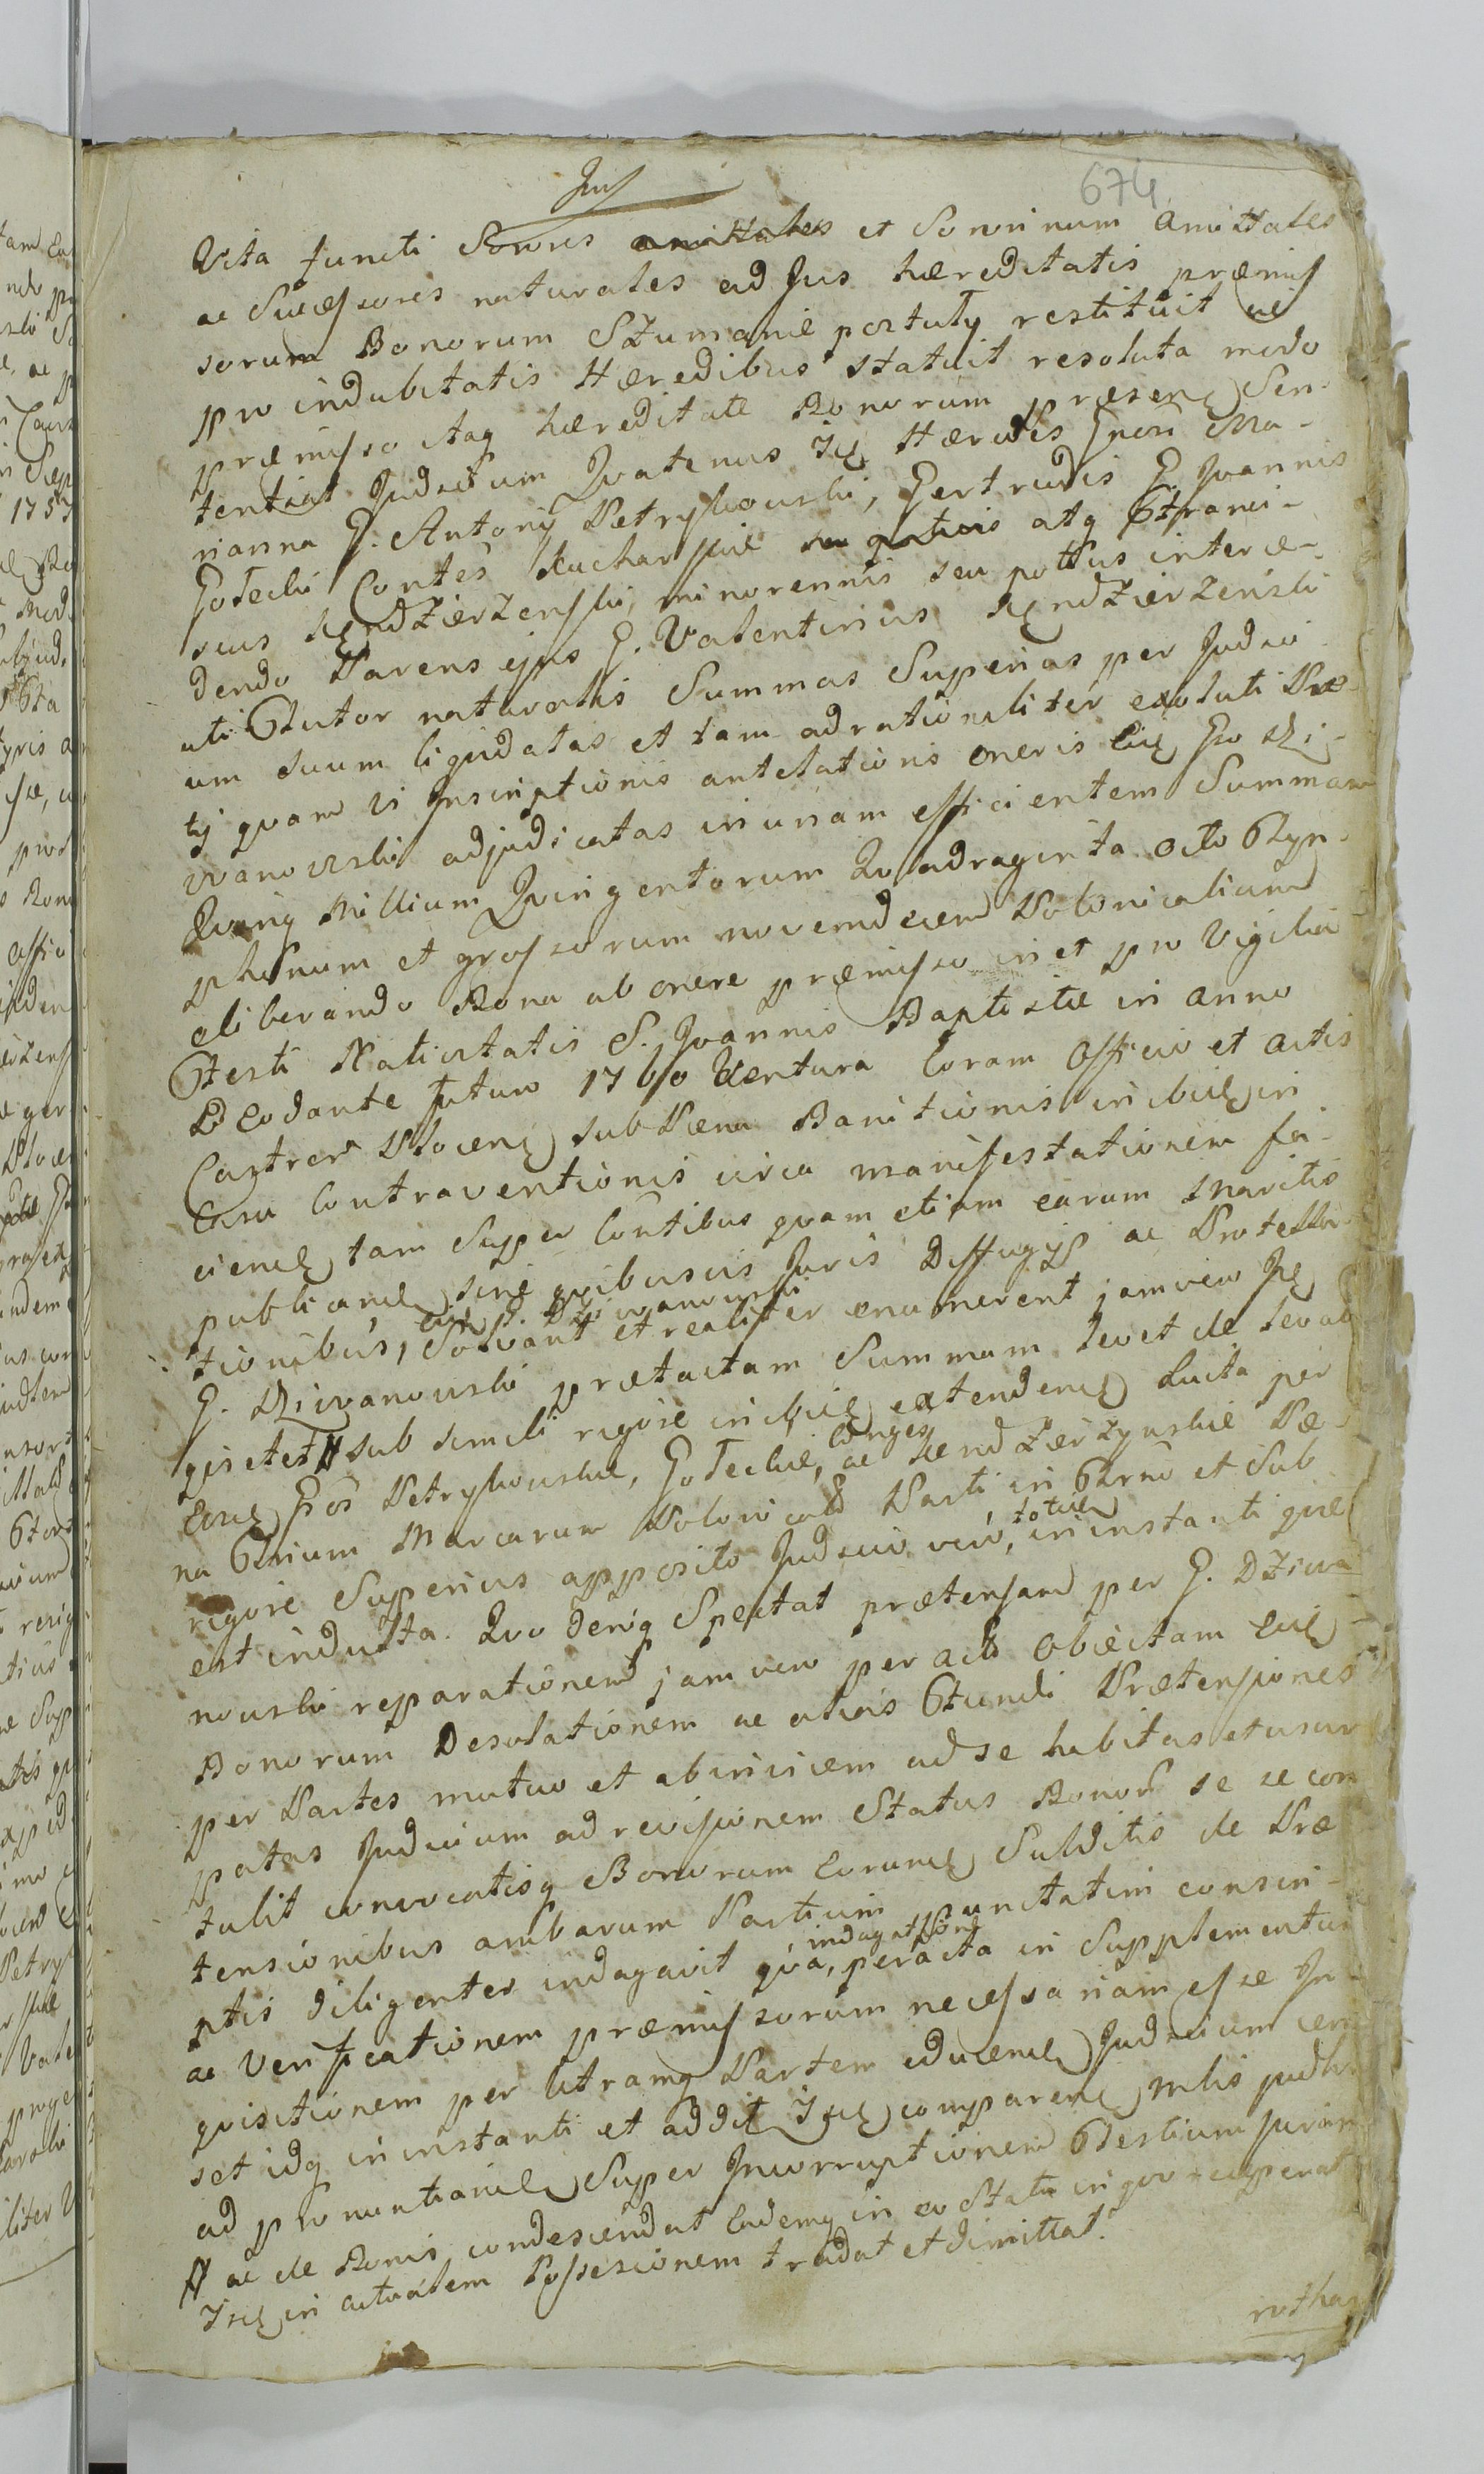 674
Vita functi Sorores amittales et Sororinum Amittales
ac Successores naturales ad Jus hæreditatis præmis
sorum Bonorum Szumanie restituit ac
pro indubitatis Hæredibus statuit resoluta modo
præmisso itaq hæreditate Bonorum præsen Sen-
tentiat Judicium Quatenus Hæredes Ma-
rianna G. Antonÿ Petrykowski, Gertrudis G. Joannis
Gotecki Contes Kucharskie atq Franci-
scus Kendzierzenski, minorennis seu potius interce-
dendo Parens ejus G. Valentinus Kendzierzenski
uti Tutor naturalis Summas Superias per Judici
um suum liquidatas et tam ad rationaliter exoluti Præ-
tÿ quam vi Inscriptionis antelationis oneris Gso Dzi-
wanowski adjudicatas in unam efficientem Summam
Quinq Millium Quingentorum Quadraginta octo Flyn-
phenum et grossorum novemdecem Polonicalium
eliberando Bona ab onere præmisso in et pro Vigilia
Festi Nativitatis S. Joannis Baptistæ in Anno
Deo dante futuro 1760 Ventura Coram Officio et Actis
Castren Plocen sub Pæna Banitionis in
Casu Contraventionis circa manifestationem fa-
cien tam Super Contibus quam etiam earum Maritis
publican sine quibusvis Juris Diffugÿs ac Protella-
G. Dziwanowski
tionibus, Solvant et realiter enumerent jam vero
G. Dziwanowski prætactam Summam levet de levata
sub simili rigore in extenden Lucta per
Conges
Gos Petrykowskie, Goteckie, ac Kendzierzynskie Pæ-
na Trium Marcarum Polonicali Parti in Trno et Sub
totie
rigore Superius apposito Judicio vero, in instanti quæ
est indulta. Quo deniq Spectat prætensam per G. Dziwa
nowski reparationem jam vero per acto Objectam
Bonorum Desolationem ac alias Fundi Prætensiones
per Partes mutuo et abinvicem ad se habitas et usur
patas Judicium ad revisionem Status Bonor se se con
tulit convocatisq Bonorum Eorun Subditis de Præ
tensionibus ambarum Partium punctatim conscri-
indagatione
ptis diligenter indagavit qua, peracta in Supplementum
ac Verificationem præmissorum necessariam esse In-
quisitionem per Utramq Partem educen Judicium cen
set idq in instanti et addit comparen
ad pronuntian Super Incorruptionem Testium
ac de Bonis condescendat Eademq in eo Statu in quo reciperat
in actualem Possesionem tradat et dimittat.